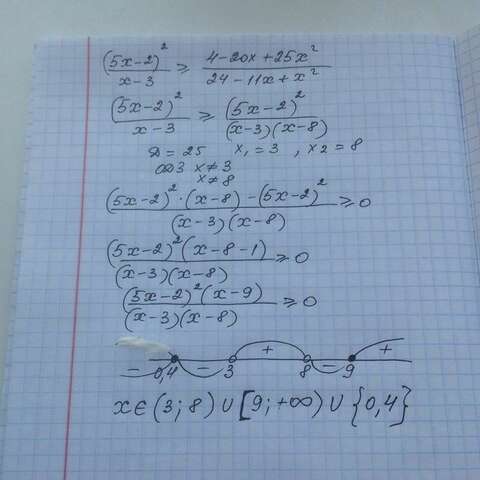 (5x-2)²/(x-3) ≥ (4-20x+25x²)/(24-11x+x²)
(5x-2)²/(x-3) ≥ (5x-2)²/((x-3)(x-8))
D = 25 x₁ = 3 , x₂ = 8
ОДЗ x≠3
x≠8
((5x-2)²·(x-8)-(5x-2)²)/((x-3)(x-8)) ≥ 0
((5x-2)²(x-8-1))/((x-3)(x-8)) ≥ 0
((5x-2)²(x-9))/((x-3)(x-8)) ≥ 0
- 0,4 - 3 + 8 - 9 +
x∈(3;8)∪[9;+∞)∪{0,4}